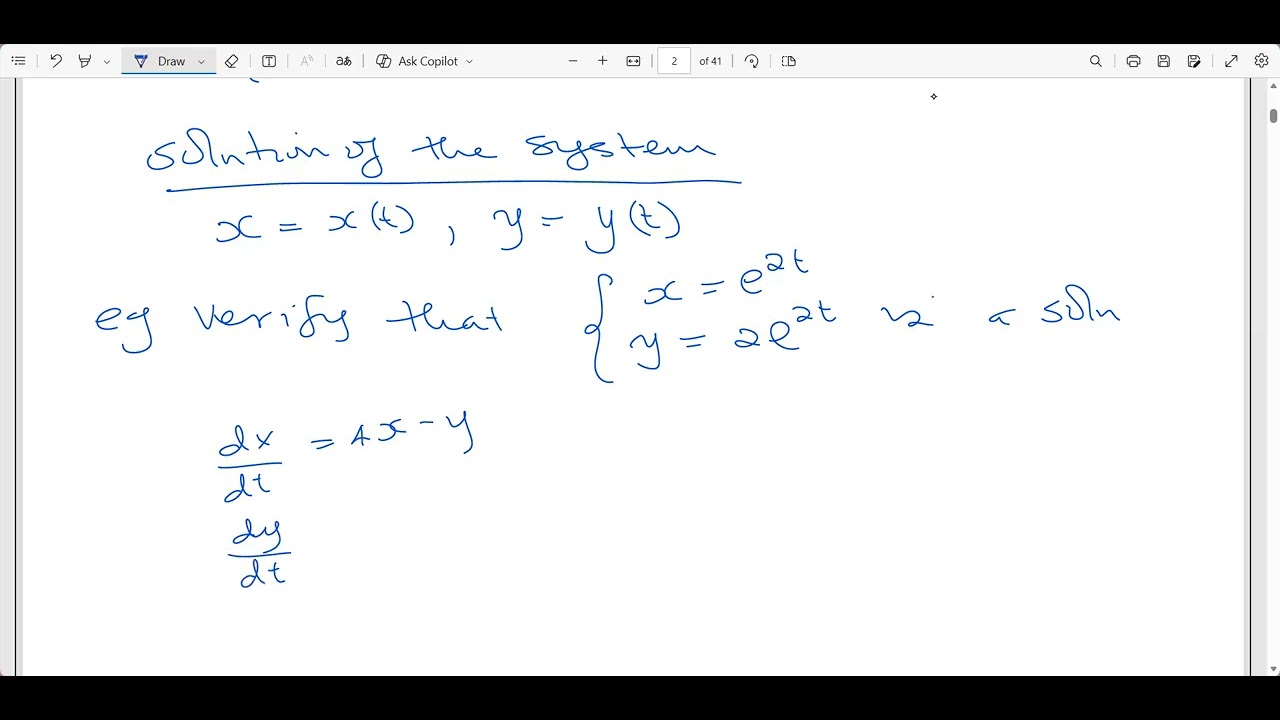 Draw aあ Ask Copilot 2 of 41
solution of the system
x = x(t), y = y(t)
eg verify that { x = e^{2t}
y = 2e^{2t} is a soln
dx/dt = 4x - y
dy/dt